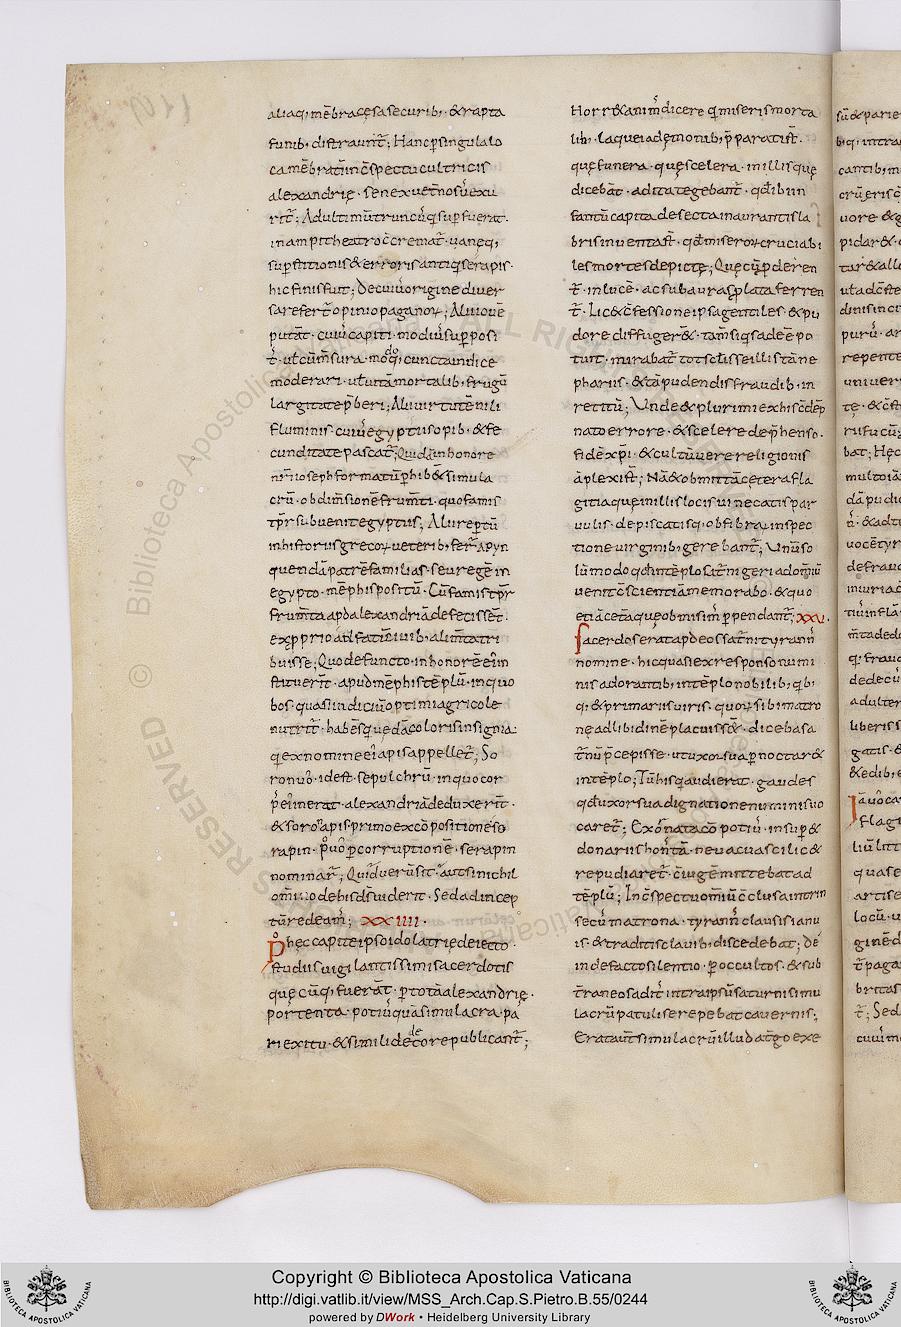 aliaq; mēbra cęsa securib; & rapta
funib; distraunt̄; Hanc ꝑ singula lo
ca mēbratī in cs̄pectu cultricis
alexandrię senex uet̄nosꝰ exu
rit̄; Ad ultimū truncꝰ q sup̄fuerat
in ampitheatro cc̄remat̄ uaneq;
sup̄stitionis & erroris antiq serapis
hic finis fuit; De cuiꝰ origine diuer
sa refert̄ opinio paganoꝝ; Alii iouē
putāt cuiꝰ capiti modiꝰ sup̄posi
moderari ut uitā mortalib; frugū
largitate p̄beri; Alii uirtutē nili
fluminis cuiꝰ egyptus opib; & fe
cunditate pascat̄; Quidā in honore
nr̄i ioseph formatū ꝑhib& simula
crū ob dimsionē frumt̄i quo famis
tp̄r subuenit egyptiis; Alii repertū
in historiis grecoꝝ ueterib; fer̄ apyn
quendā patrē familias seu regē in
egypto mēphis positū Cū famis tp̄r
frumt̄a apd alexandriā defecissēt
buisse; Quo defuncto in honorē ei
stituert̄ apud mēphis tēplū in quo
bos quasi indiciū optimi agricole
nutrit̄ habēs quedā coloris insignia
q ex nomine ei apis appellet̄; So
ron uo idest sepulchrū in quo cor
pꝰ ei inerat alexandriā deduxert̄
& soroapis primo ex cōpositione so
rapin p uo ꝑ corruptionē serapin
nominar̄; Quid uerū sit aut si nichil
om̄ino de his ds̄ uiderit Sed ad incep
tū redeam; XXIIII.
Phęc capite ipso idolatrię deiecto
studiis uigilantissimi sacerdotis
quę cūq; fuerāt ꝑ totā alexandrię
portenta potiꝰ quā simulacra pa
ri exitu & simili dedecore publicant̄;
Horr& anim dicere q miseris morta
lib; laquei a dęmonib; p̄parati st̄
quę funera quę scelera in illis quę
dicebāt adita tegebant̄ qd ibi in
fantū capita desecta inauratis la
bris inuenta st̄ qd miseroꝝ cruciabi
les mortes depictę; Quę cū ꝑderen
t̄ in lucē ac sub auras ꝓlata ferren
t̄ Lic& cf̄essione ipsa gentiles & pu
dore diffuger& tam si q s adeē po
tuit mirabat̄ tot sclis se illis tā ne
phariis & tā pudendis fraudib; in
retitū; Unde & plurimi ex his cd̄ēp
nato errore & scelere dep̄henso
fidē xp̄i & cultū uere religionis
āplexi st̄; Nā & ob mittā cetera fla
gitia quę in illis locis ui necatis par
uulis depiscatisq; ob fibraꝝ inspec
tione uirginib; gerebant̄; Unū so
lūmodo qd in tēplo sat̄ni geri ad om̄iū
uenit cs̄cientiā memorabo & quo
etiā cetā quę obmisim ꝑpendant̄; XXV.
Sacerdos erat apd eos sat̄ni tyrannꝰ
nomine hic quasi ex responso numi
nis adorantib; in tēplo nobilib; qb;
q; & primariis uiris quoꝝ sibi matro
nę ad libidinē placuiss& dicebat sa
t̄nū p̄cepisse ut uxor sua pnoctar&
in tēplo; Tū his q audierat gaudēs
qd uxor sua dignatione numinis uo
caret̄; Exornatā cō potiꝰ insup &
donariis hont̄ā ne uacua scilic&
repudiaret̄ ciugē mittebat ad
tēplū; In cs̄pectu om̄iū cclusa intrin
secꝰ matrona tyrannꝰ clausis ianu
is & traditis clauib; discedebat; De
inde facto silentio ꝑ occultos & sub
t̄raneos aditꝰ intra ipsū saturni simu
lacrū patulis erepebat cauernis;
Erat autē simulacrū illud at̄go exe
Copyright © Biblioteca Apostolica Vaticana
http://digi.vatlib.it/view/MSS_Arch.Cap.S.Pietro.B.55/0244
powered by DWork • Heidelberg University Library